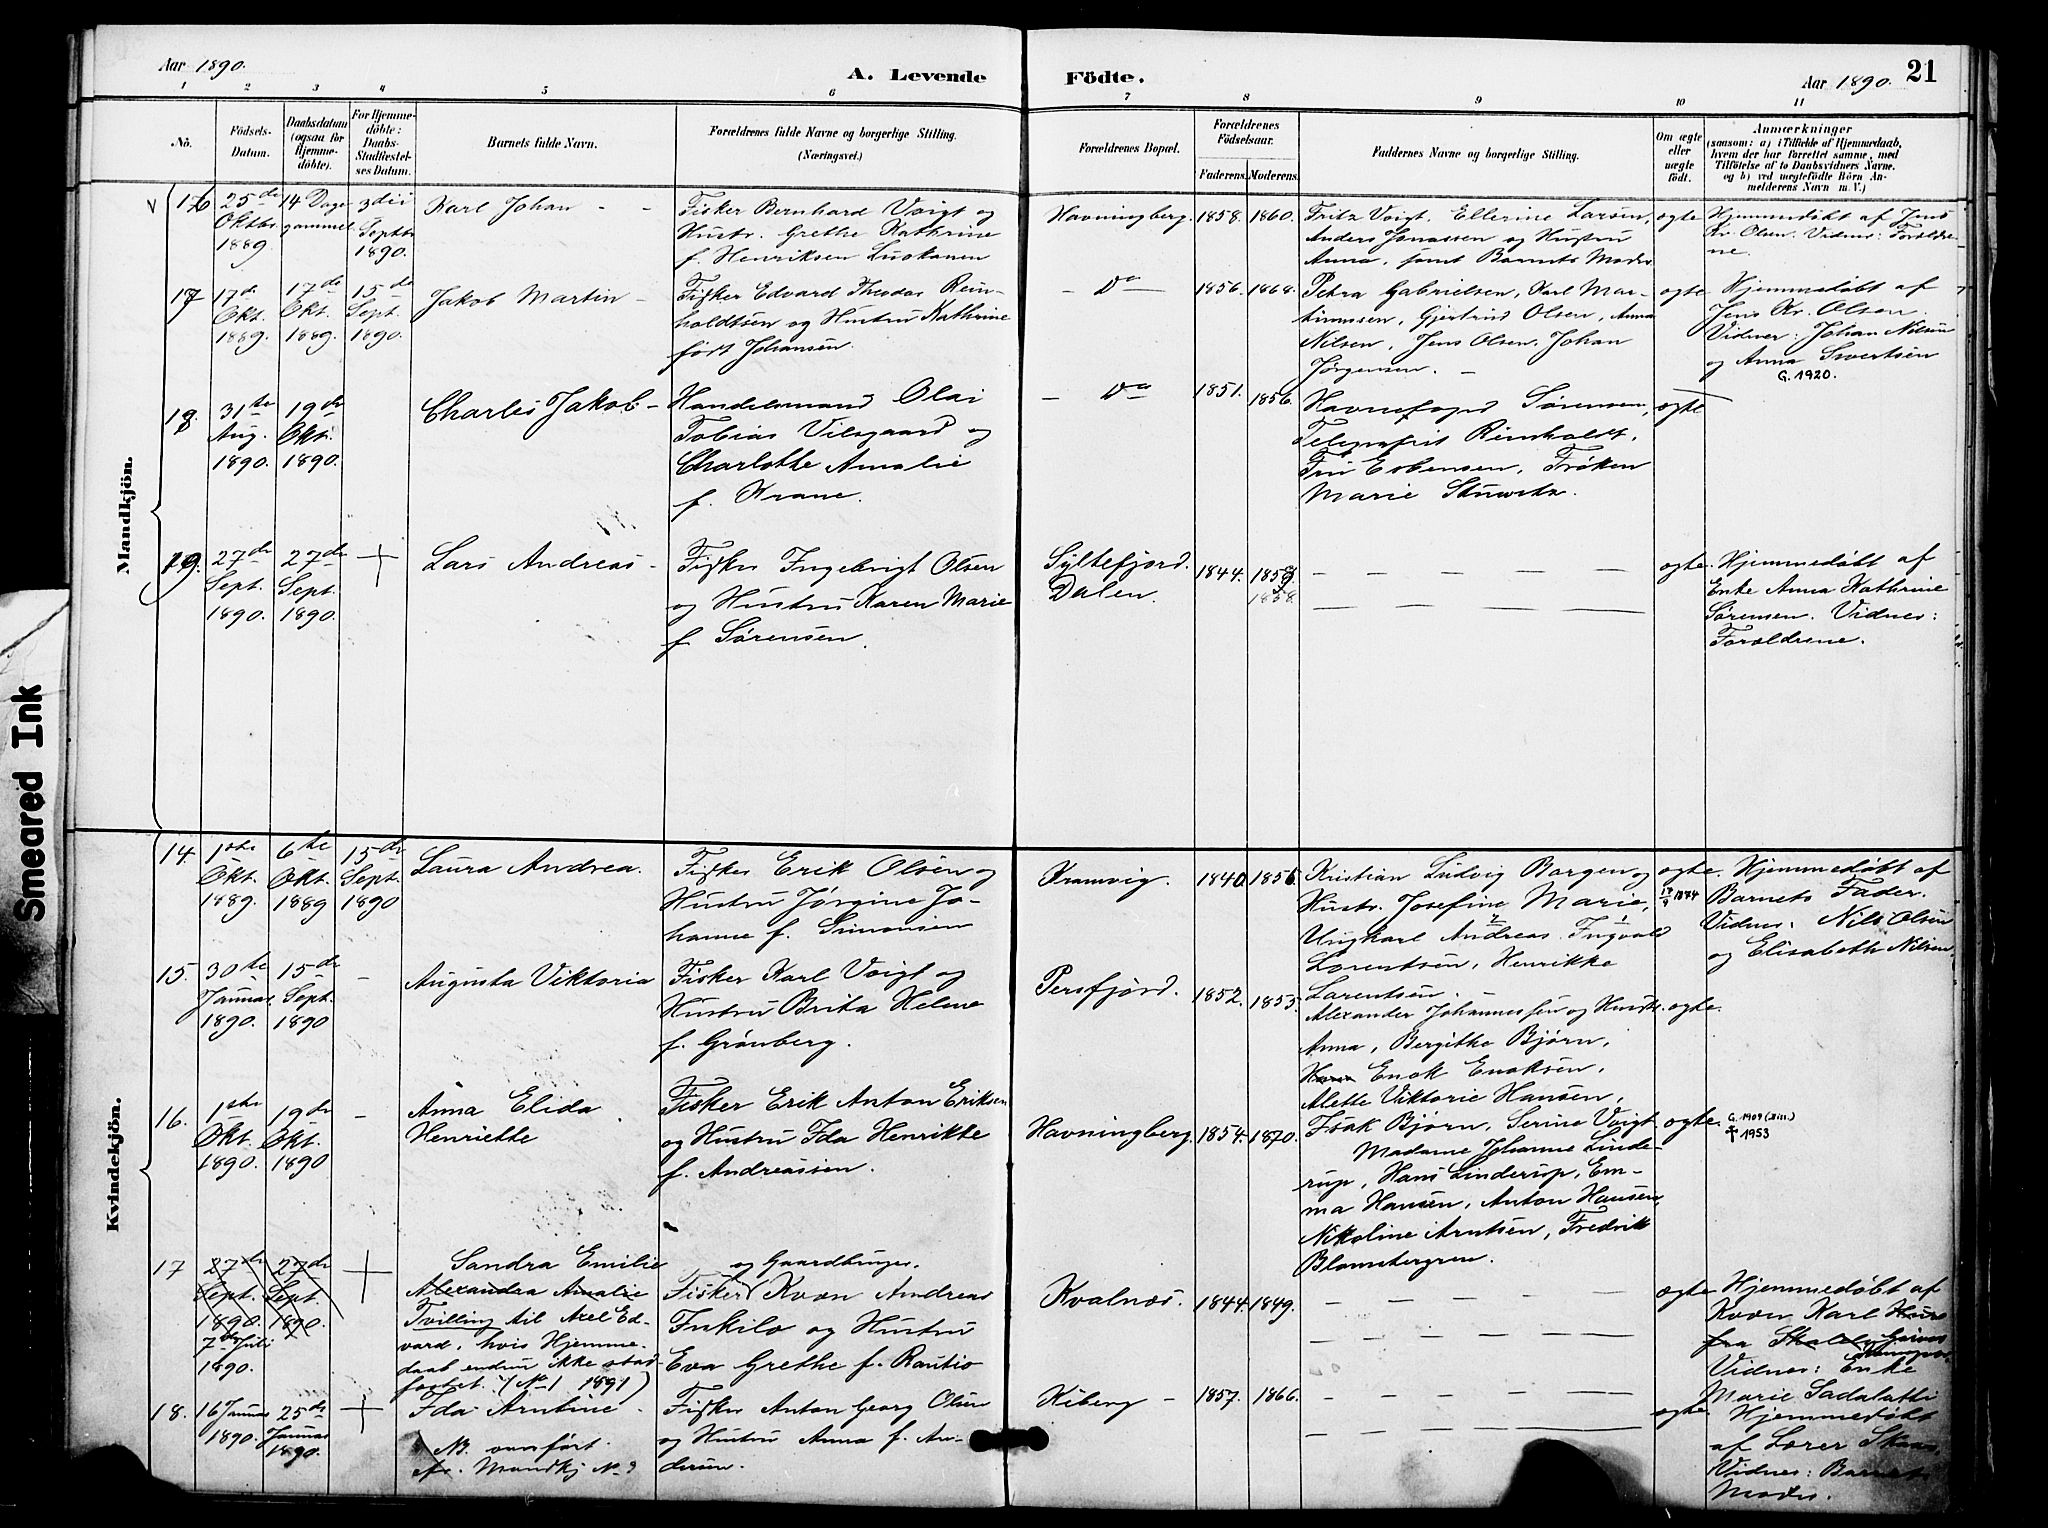 Aar 1890.
A. Levende
Födte.
Aar 1890.
21
1 2 3 4 5 6 7 8 9 10 11
No.
Födsels-
Datum.
Daabsdatum
(ogsaa for
Hjemme-
döbte).
For Hjemme-
döbte:
Daabs-
Stadfæstel-
ses Datum.
Barnets fulde Navn.
Forældrenes fulde Navne og borgerlige Stilling.
(Næringsvei.)
Forældrenes Bopæl.
Forældrenes
Födselsaar.
Faderens. Moderens.
Faddernes Navne og borgerlige Stilling.
Om ægte
eller
uægte
födt.
Anmærkninger
(saasom: a) i Tilfælde af Hjemmedaab,
hvem der har forrettet samme, med
Tilföielse af to Daabsvidners Navne.
og b) ved uægtefödte Börn An-
melderens Navn m. V.)
Mandkjön.
16
25de
Oktbr.
1889.
14 Dage
gammel
3die
Septbr.
1890.
Karl Johan - -
Fisker Bernhard Voigt og
Hustr. Grethe Kathrine
f. Henriksen Luokanen
Havningberg.
1858. 1860.
Fritz Voigt, Ellerine Larsen,
Anders Jonassen og Hustru
Anna, samt Barnets Moder
ægte
Hjemmedøbt af Jens
Kr. Olsen. Vidner: Foræeldre-
ne.
17
17de
Okt.
1889.
17de
Okt.
1889.
15de
Sept.
1890.
Jakob Martin -
Fisker Edvard Theodor Rein-
holdtsen og Hustru Kathrine
født Johansen.
- Do
1856. 1868.
Petra Gabrielsen, Karl Mar-
tinussen, Gjertrud Olsen, Anna
Nilsen, Jens Olsen, Johan
Jørgensen. -
ægte
Hjemmedøbt af
Jens Kr. Olsen.
Vidner: Johan Nilsen
og Anna Sivertsen
G. 1920.
18.
31te
Aug.
1890.
19de
Okt.
1890.
Charles Jakob -
Handelsmand Olai
Tobias Vilsgaard og
Charlotte Amalie
f. Krane.
- Do
1851. 1856.
Havnefoged Sørensen,
Telegrafist Reinholdt,
Fru Esbensen, Frøken
Marie Stuwitz.
ægte
19.
27de
Sept.
1890.
27de
Sept.
1890.
+
Lars Andreas -
Fisker Ingebrigt Olsen
og Hustru Karen Marie
f. Sørensen.
Syltefjord
Dalen.
1844. 1859.
1858.
ægte.
Hjemmedøbt af
Enke Anna Kathrine
Sørensen. Vidner:
Forældrene.
Kvindekjön.
14.
1ste
Okt.
1889.
6te
Okt.
1889
15de
Sept.
1890
Laura Andrea.
Fisker Erik Olsen og
Hustru Jørgine Jo-
hanne f. Simonsen
Kramvig.
1840. 1856.
Kristian Ludvig Borgen og
Hustr. Josefine Marie,
Ungkarl Andreas Ingvald
Lorentsen, Henrikke
Larentsen. -
ægte.
Hjemmedøbt af
Barnets Fader.
Vidner: Nils Olsen
og Elisabeth Nilsen.
15.
30te
Januar
1890.
15de
Sept.
1890
-
Augusta Viktoria
Fisker Karl Voigt og
Hustru Brita Helene
f. Grønberg.
Persfjord.
1852. 1853.
Alexander Johannessen og Hustr.
Anna, Bergithe Bjørn,
Enok Enoksen,
Alette Viktorie Hansen,
ægte.
16.
1ste
Okt.
1890.
19de
Okt.
1890
-
Anna Elida
Henriette
Fisker Erik Anton Eriksen
og Hustru Ida Henrikke
f. Andreassen.
Havningberg.
1854. 1870.
Isak Bjørn, Serine Voigt
Madame Johanne Linde-
rup, Hans Linderup, Em-
ma Hansen, Anton Hansen,
Nikoline Arntsen, Fredrik
Blomstergren.
ægte.
G. 1909
✝ 1953
17
27de
Sept.
1890
7de Juli
1890.
27de
Sept.
1890.
+
Sandra Emilie
Alexandra Amalie
Tvilling til Axel Ed-
vard, hvis Hjemme-
daab endnu ikke stad-
fæstet. (No 1 1891)
og Gaardbruger.
Fisker Kvæn Andreas
Inkilæ og Hustru
Eva Grethe f. Rautio
Kvalnæs.
1844. 1849.
ægte
Hjemmedøbt af
Kvæn Karl
fra
Vidner: Enke
Marie Sadalatti
18.
16 Januar
1890.
25de
Januar
1890.
+
Ida Arntine -
NB.
Mandkj No 9
Fisker Anton Georg Olsen
og Hustru Anna f. An-
dersen.
Kiberg -
1857. 1866.
ægte
Hjemmedøbt
af Lærer
Vidner: Barnets
Moder.
Smeared Ink